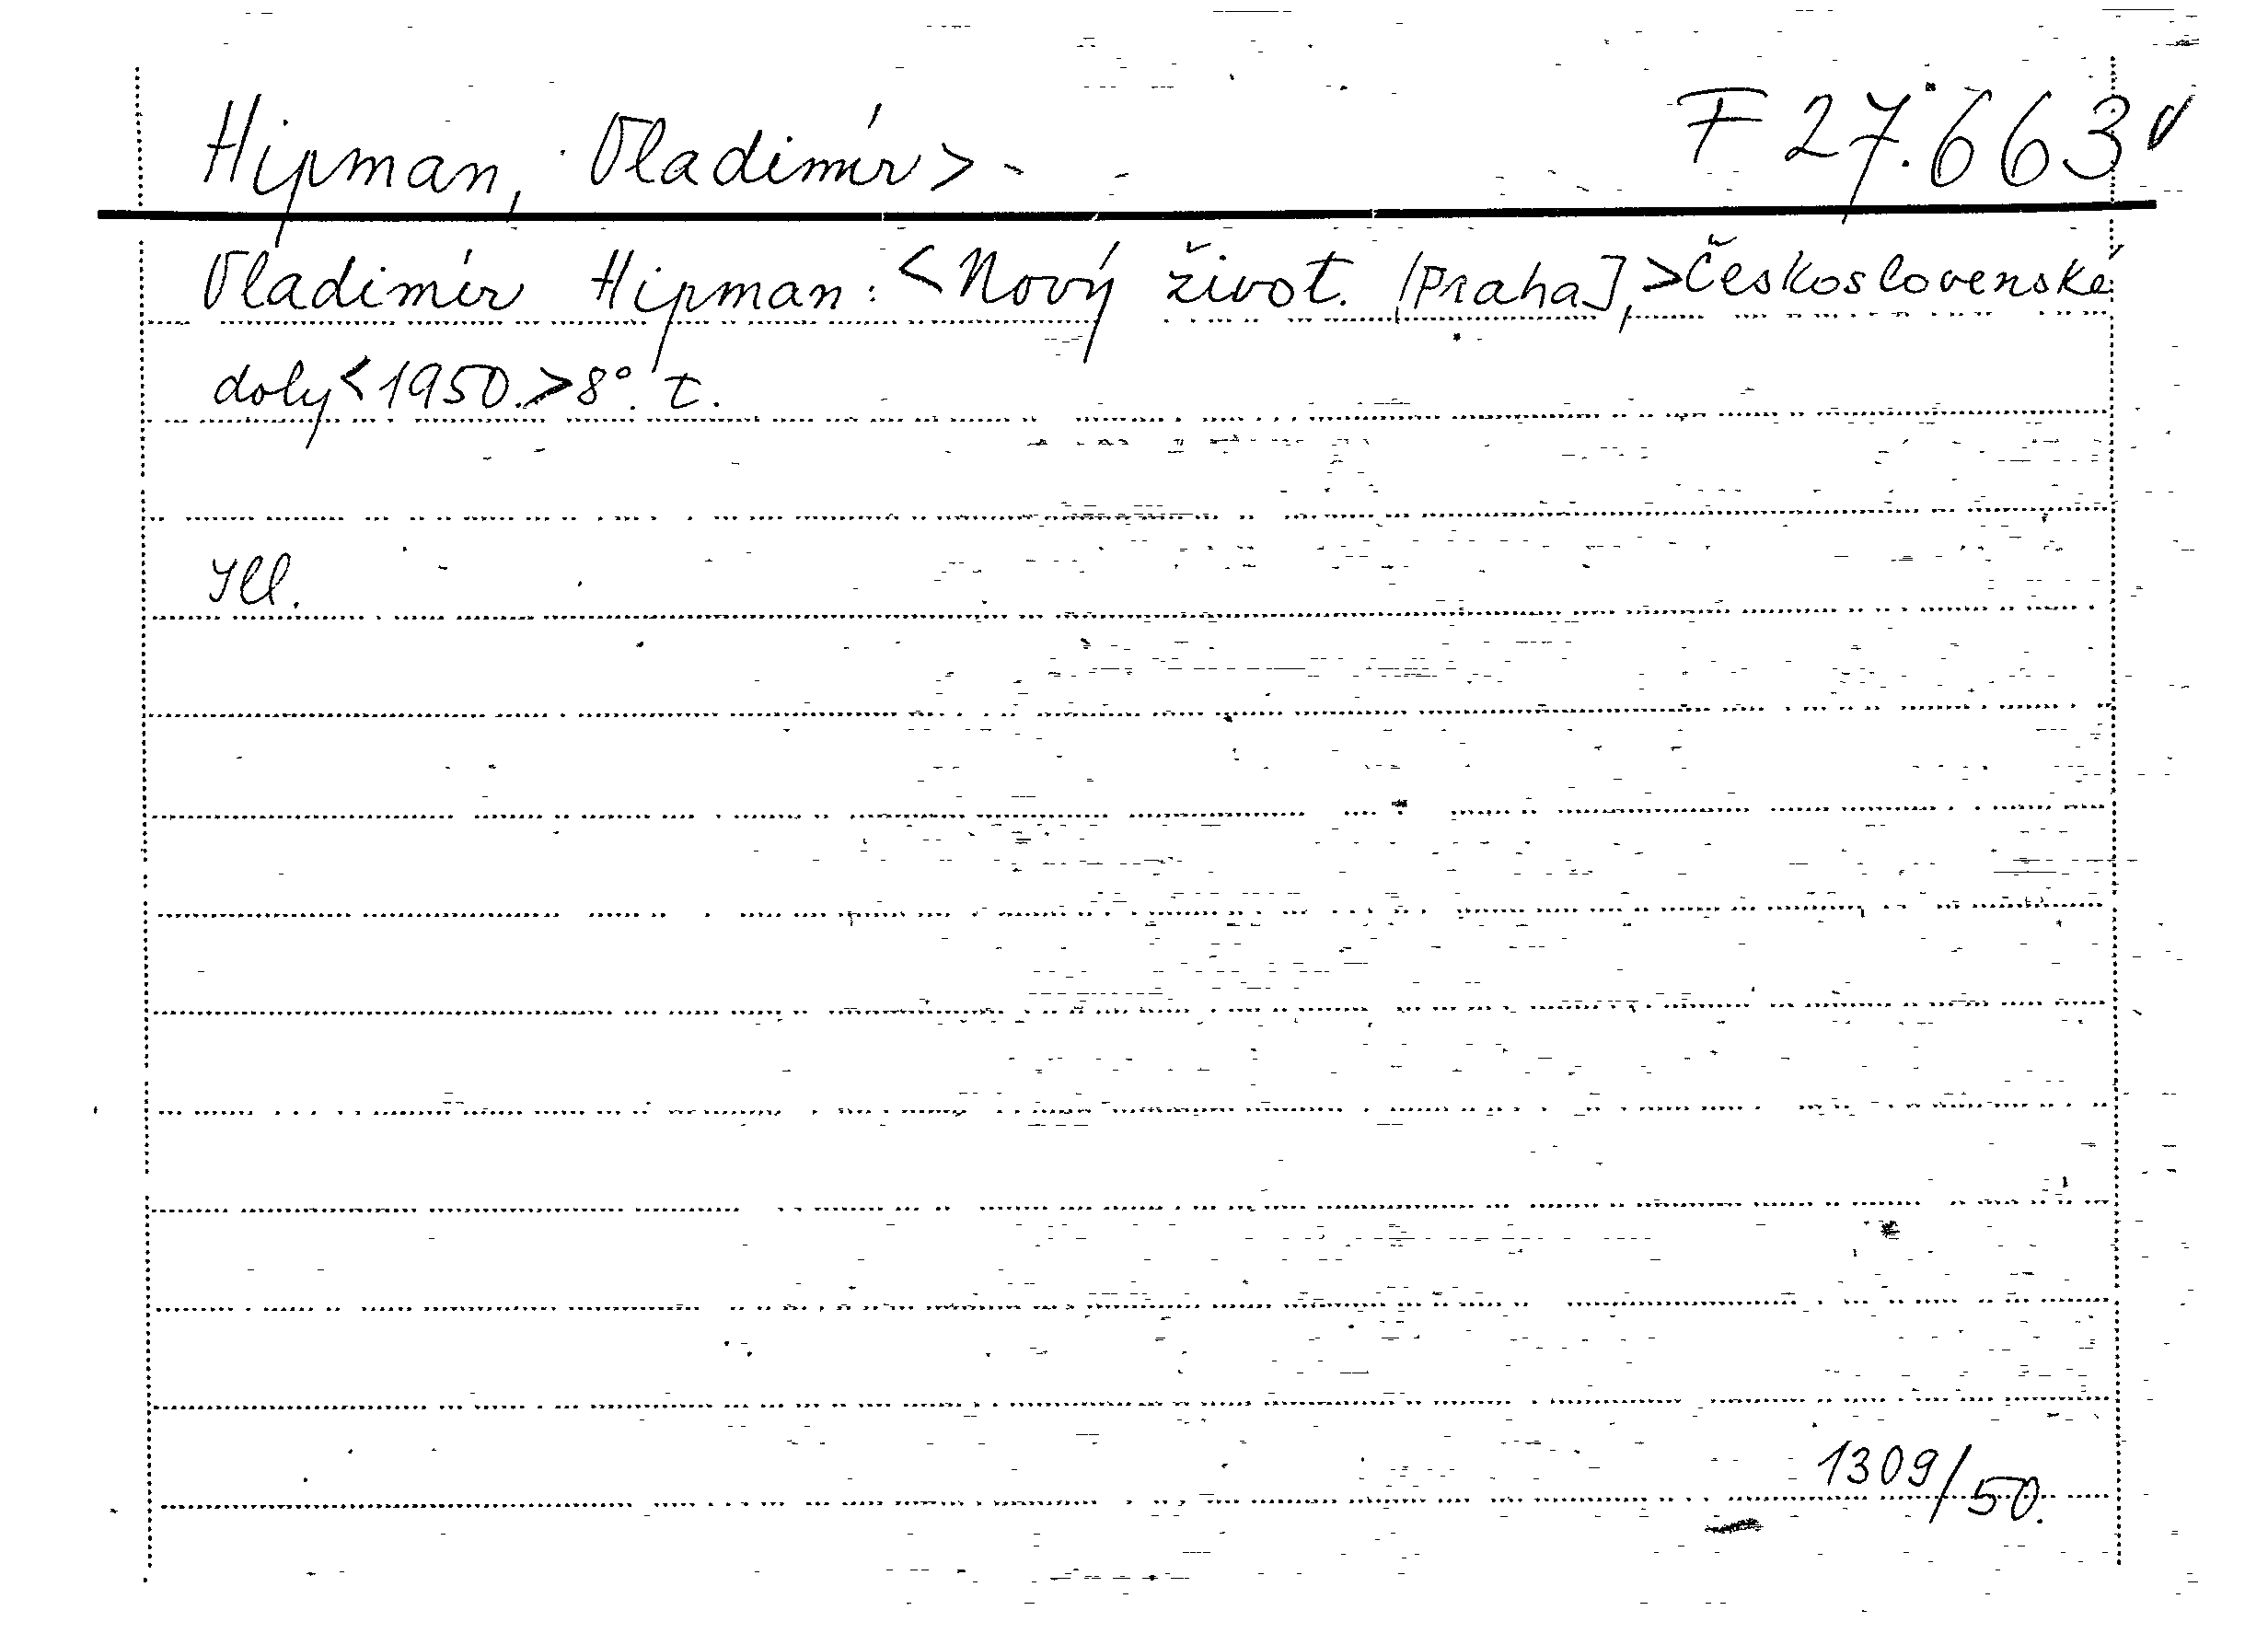 Hipman, Vladimír> F 27.663
Vladimír Hipman: <Nový život. [Praha],> Československé
doly <1950.> 8°. t.
Ill.
1309/50.